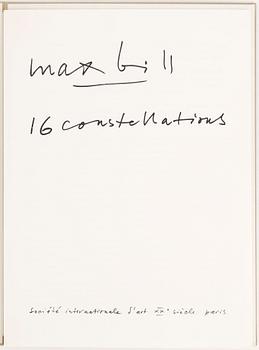 max bill
16 constellations
société internationale d'art XXe siècle paris